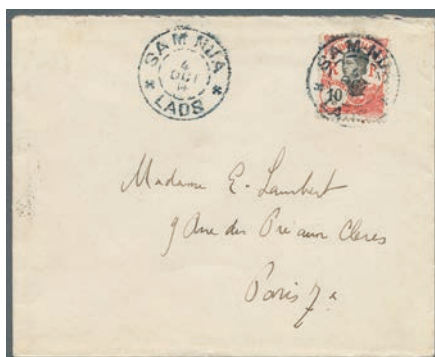 SAM NUA
4
OCT
14
* LAOS *
SAM NUA
10
Madame E. Lambert
9 Rue du Pré aux Clercs
Paris 7e